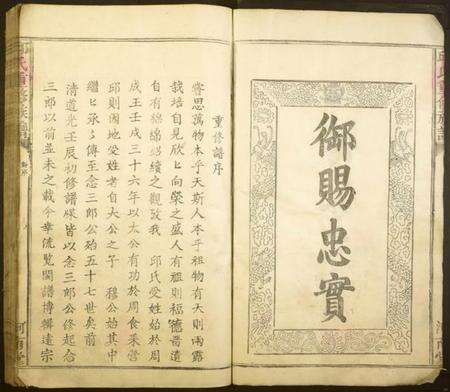 御賜忠實
重修譜序
嘗思萬物本乎天斯人本乎祖物有天則雨露
栽培自見欣欣向榮之盛人有祖則福德普遺
自有綿綿紹續之觀致我 邱氏受姓始於周
成王壬戌三十六年以太公有功於周食采營
邱則因地受姓者自太公之子 穆公始其中
繼七承分傳至念三郎公始五十七世矣前
清道光壬辰初修譜牒皆以念三郎公修起合
三郎以前並未之載今幸流覽閩譜博輯達宗
河南堂